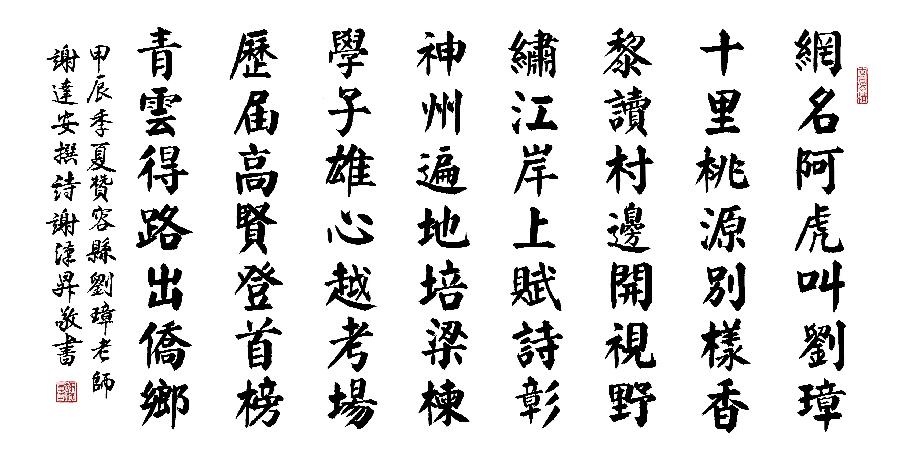 網名阿虎叫劉璋
十里桃源別樣香
黎讀村邊開視野
繡江岸上賦詩彰
神州遍地培梁棟
學子雄心越考場
歷屆高賢登首榜
青雲得路出僑鄉
甲辰季夏贊容縣劉璋老師
謝達安撰詩謝漢昇敬書